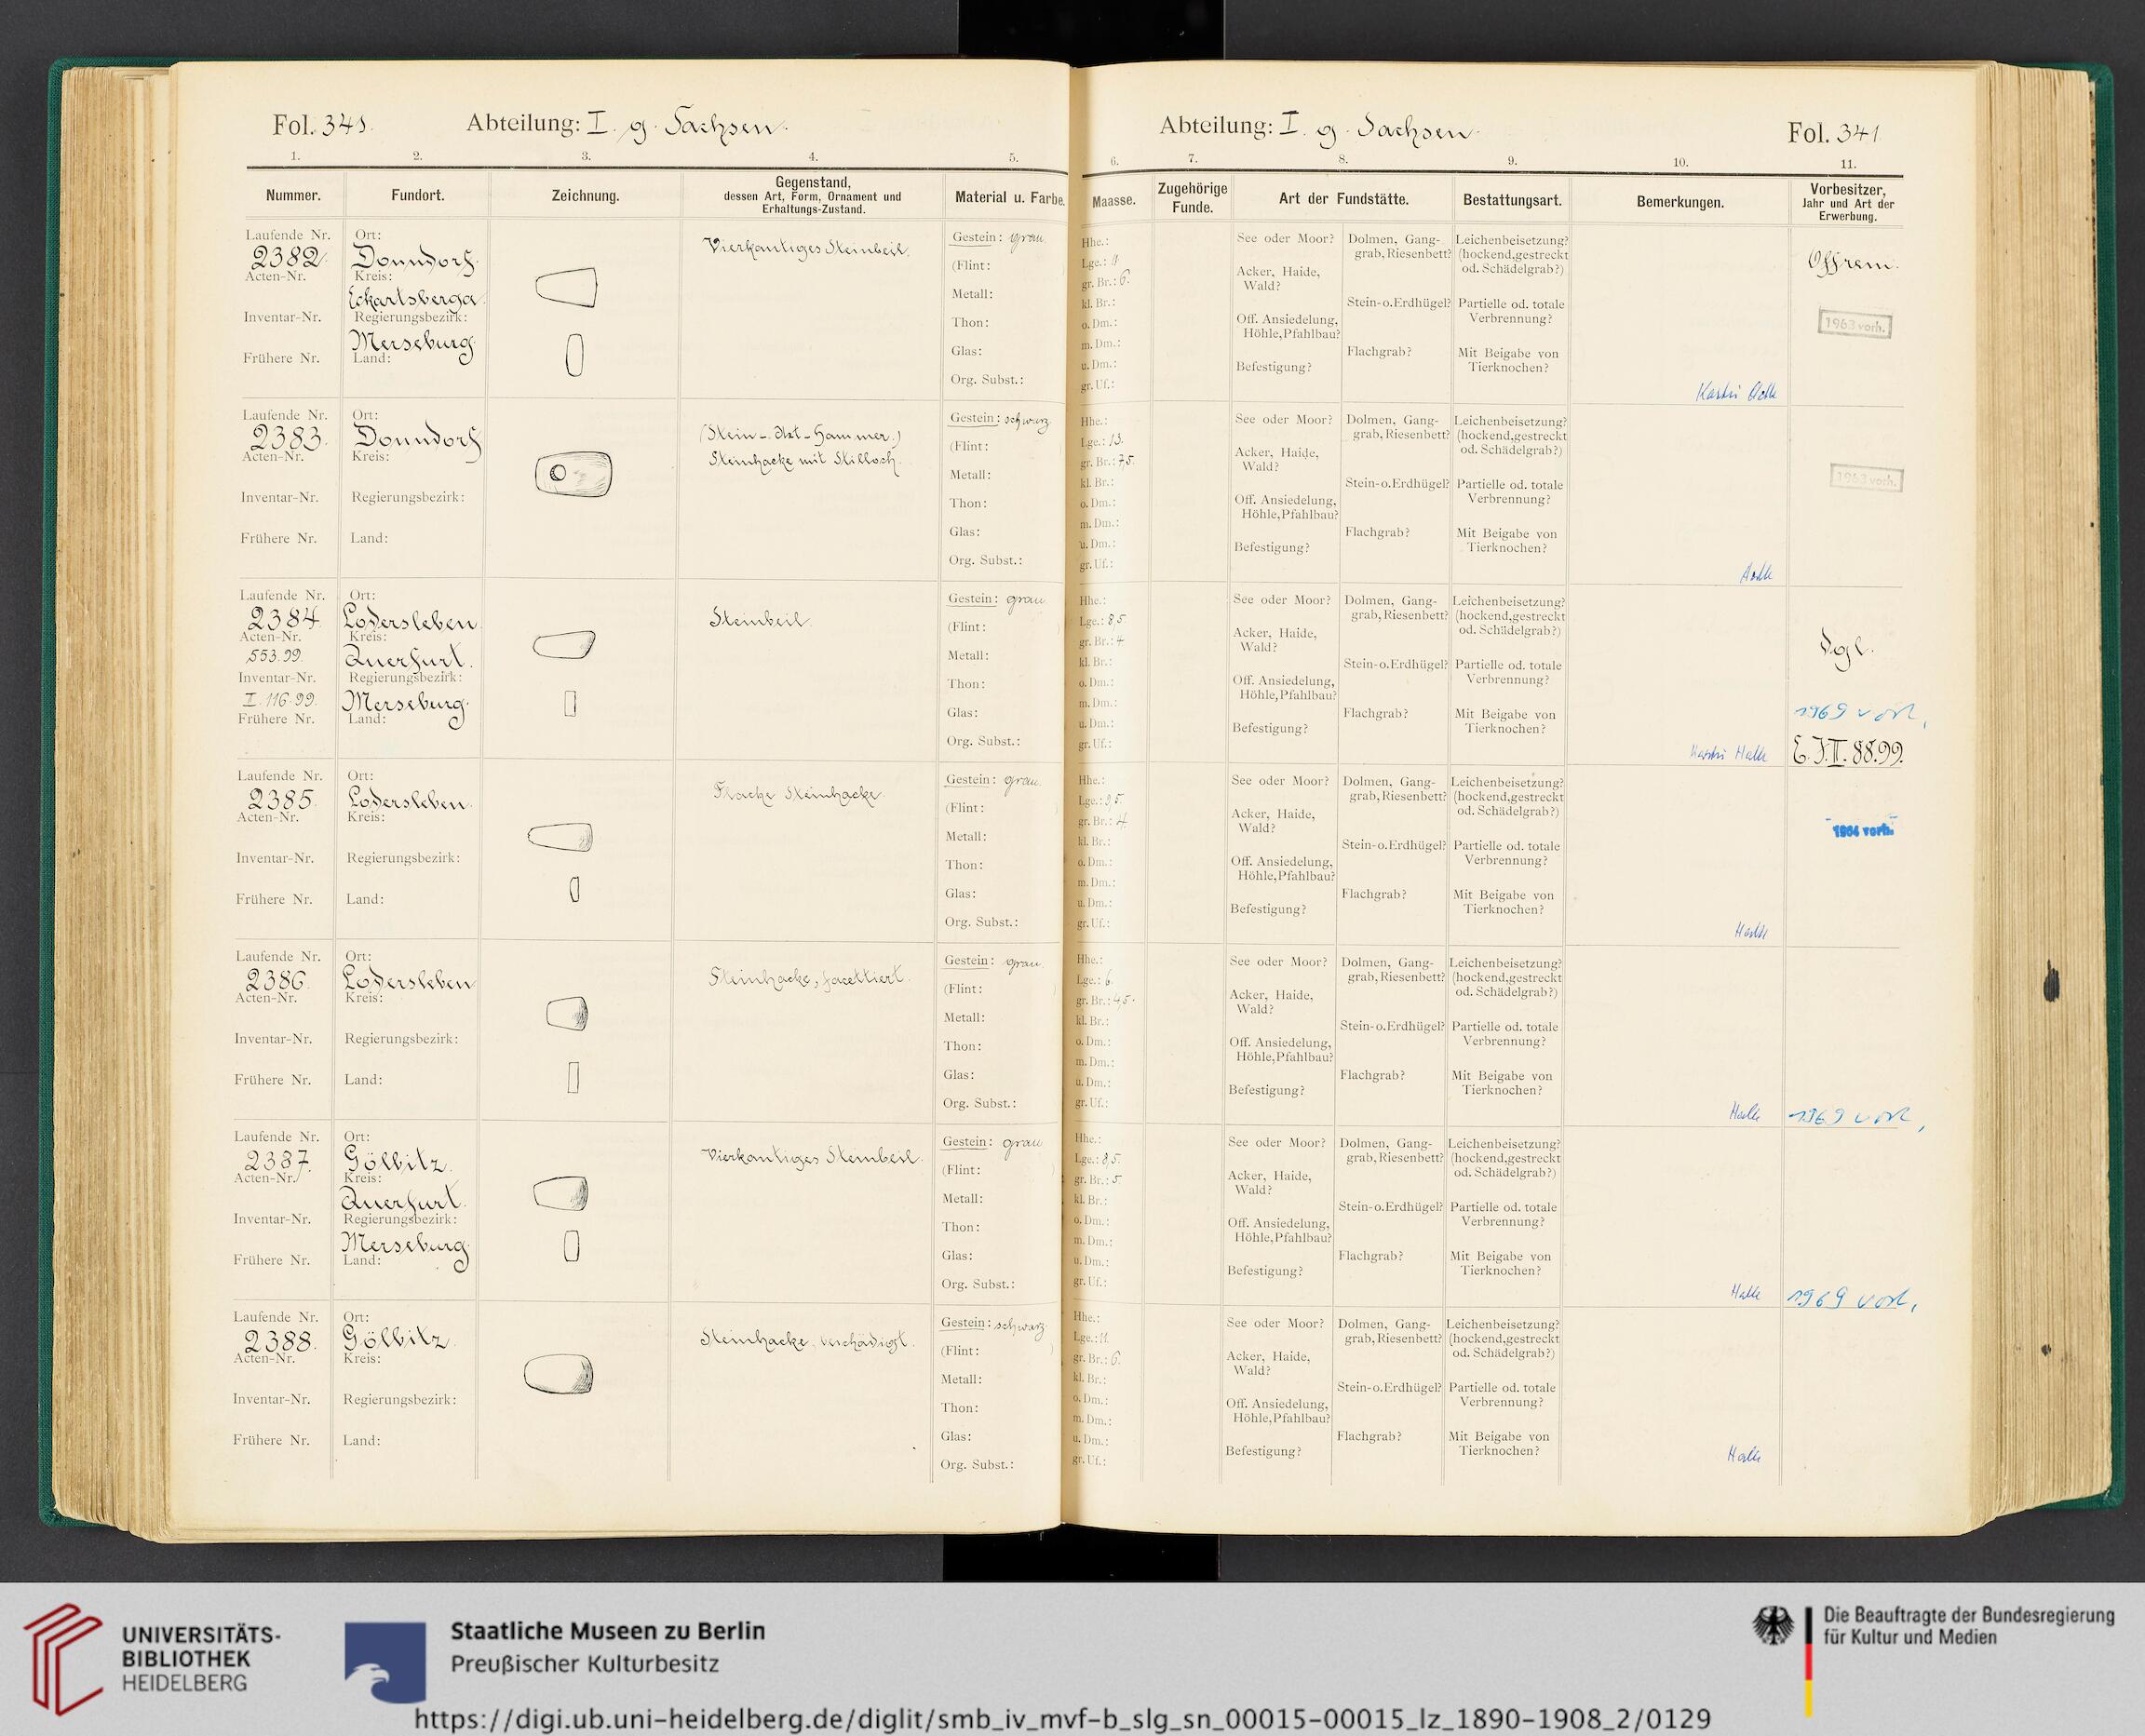 Fol. 341.
Abteilung: I. g. Sachsen.
Abteilung: I. g. Sachsen.
Fol. 341
1. 2. 3. 4. 5. 6. 7. 8. 9. 10. 11.
Nummer.
Fundort.
Zeichnung.
Gegenstand,
dessen Art, Form, Ornament und
Erhaltungs-Zustand.
Material u. Farbe.
Maasse.
Zugehörige
Funde.
Art der Fundstätte.
Bestattungsart.
Bemerkungen.
Vorbesitzer,
Jahr und Art der
Erwerbung.
Laufende Nr.
2382.
Acten-Nr.
Inventar-Nr.
Frühere Nr.
Ort:
Donndorf.
Kreis:
Eckartsberga.
Regierungsbezirk:
Merseburg.
Land:
Vierkantiges Steinbeil.
Gestein: grau
(Flint: )
Metall:
Thon:
Glas:
Org. Subst.:
Hhe.:
Lge.: 11.
gr. Br.: 6.
kl. Br.:
o. Dm.:
m. Dm.:
u. Dm.:
gr. Uf.:
See oder Moor?
Acker, Haide,
Wald?
Off. Ansiedelung,
Höhle, Pfahlbau?
Befestigung?
Dolmen, Gang-
grab, Riesenbett?
Stein- o. Erdhügel?
Flachgrab?
Leichenbeisetzung?
(hockend, gestreckt
od. Schädelgrab?)
Partielle od. totale
Verbrennung?
Mit Beigabe von
Tierknochen?
1963 vorh.
Laufende Nr.
2383.
Acten-Nr.
Inventar-Nr.
Frühere Nr.
Ort:
Donndorf
Kreis:
Regierungsbezirk:
Land:
(Stein-Axt-Hammer.)
Steinhacke mit Stilloch.
Gestein: schwarz
(Flint: )
Metall:
Thon:
Glas:
Org. Subst.:
Hhe.:
Lge.: 13.
gr. Br.: 7,5.
kl. Br.:
o. Dm.:
m. Dm.:
u. Dm.:
gr. Uf.:
See oder Moor?
Acker, Haide,
Wald?
Off. Ansiedelung,
Höhle, Pfahlbau?
Befestigung?
Dolmen, Gang-
grab, Riesenbett?
Stein- o. Erdhügel?
Flachgrab?
Leichenbeisetzung?
(hockend, gestreckt
od. Schädelgrab?)
Partielle od. totale
Verbrennung?
Mit Beigabe von
Tierknochen?
1963 vorh.
Laufende Nr.
2384.
Acten-Nr.
553.99.
Inventar-Nr.
I. 116.99.
Frühere Nr.
Ort:
Lodersleben.
Kreis:
Querfurt.
Regierungsbezirk:
Merseburg.
Land:
Steinbeil
Gestein: grau
(Flint: )
Metall:
Thon:
Glas:
Org. Subst.:
Hhe.:
Lge.: 8,5
gr. Br.: 4
kl. Br.:
o. Dm.:
m. Dm.:
u. Dm.:
gr. Uf.:
See oder Moor?
Acker, Haide,
Wald?
Off. Ansiedelung,
Höhle, Pfahlbau?
Befestigung?
Dolmen, Gang-
grab, Riesenbett?
Stein- o. Erdhügel?
Flachgrab?
Leichenbeisetzung?
(hockend, gestreckt
od. Schädelgrab?)
Partielle od. totale
Verbrennung?
Mit Beigabe von
Tierknochen?
Halle
Vgl.
1969 vorh,
E. J. II. 88.99.
Laufende Nr.
2385.
Acten-Nr.
Inventar-Nr.
Frühere Nr.
Ort:
Lodersleben.
Kreis:
Regierungsbezirk:
Land:
Flache Steinhacke.
Gestein: grau.
(Flint: )
Metall:
Thon:
Glas:
Org. Subst.:
Hhe.:
Lge.: 9,5.
gr. Br.: 4.
kl. Br.:
o. Dm.:
m. Dm.:
u. Dm.:
gr. Uf.:
See oder Moor?
Acker, Haide,
Wald?
Off. Ansiedelung,
Höhle, Pfahlbau?
Befestigung?
Dolmen, Gang-
grab, Riesenbett?
Stein- o. Erdhügel?
Flachgrab?
Leichenbeisetzung?
(hockend, gestreckt
od. Schädelgrab?)
Partielle od. totale
Verbrennung?
Mit Beigabe von
Tierknochen?
Halle
1964 vorh.
Laufende Nr.
2386.
Acten-Nr.
Inventar-Nr.
Frühere Nr.
Ort:
Lodersleben
Kreis:
Regierungsbezirk:
Land:
Steinhacke, facettiert.
Gestein: grau.
(Flint: )
Metall:
Thon:
Glas:
Org. Subst.:
Hhe.:
Lge.: 6.
gr. Br.: 4,5.
kl. Br.:
o. Dm.:
m. Dm.:
u. Dm.:
gr. Uf.:
See oder Moor?
Acker, Haide,
Wald?
Off. Ansiedelung,
Höhle, Pfahlbau?
Befestigung?
Dolmen, Gang-
grab, Riesenbett?
Stein- o. Erdhügel?
Flachgrab?
Leichenbeisetzung?
(hockend, gestreckt
od. Schädelgrab?)
Partielle od. totale
Verbrennung?
Mit Beigabe von
Tierknochen?
Halle
1969 vorh,
Laufende Nr.
2387.
Acten-Nr.
Inventar-Nr.
Frühere Nr.
Ort:
Gölbitz.
Kreis:
Querfurt.
Regierungsbezirk:
Merseburg
Land:
Vierkantiges Steinbeil.
Gestein: grau
(Flint: )
Metall:
Thon:
Glas:
Org. Subst.:
Hhe.:
Lge.: 8,5.
gr. Br.: 5.
kl. Br.:
o. Dm.:
m. Dm.:
u. Dm.:
gr. Uf.:
See oder Moor?
Acker, Haide,
Wald?
Off. Ansiedelung,
Höhle, Pfahlbau?
Befestigung?
Dolmen, Gang-
grab, Riesenbett?
Stein- o. Erdhügel?
Flachgrab?
Leichenbeisetzung?
(hockend, gestreckt
od. Schädelgrab?)
Partielle od. totale
Verbrennung?
Mit Beigabe von
Tierknochen?
Halle
1969 vorh,
Laufende Nr.
2388.
Acten-Nr.
Inventar-Nr.
Frühere Nr.
Ort:
Gölbitz
Kreis:
Regierungsbezirk:
Land:
Steinhacke, beschädigt.
Gestein: schwarz.
(Flint: )
Metall:
Thon:
Glas:
Org. Subst.:
Hhe.:
Lge.: 11.
gr. Br.: 6.
kl. Br.:
o. Dm.:
m. Dm.:
u. Dm.:
gr. Uf.:
See oder Moor?
Acker, Haide,
Wald?
Off. Ansiedelung,
Höhle, Pfahlbau?
Befestigung?
Dolmen, Gang-
grab, Riesenbett?
Stein- o. Erdhügel?
Flachgrab?
Leichenbeisetzung?
(hockend, gestreckt
od. Schädelgrab?)
Partielle od. totale
Verbrennung?
Mit Beigabe von
Tierknochen?
Halle
UNIVERSITÄTS-
BIBLIOTHEK
HEIDELBERG
Staatliche Museen zu Berlin
Preußischer Kulturbesitz
Die Beauftragte der Bundesregierung
für Kultur und Medien
https://digi.ub.uni-heidelberg.de/diglit/smb_iv_mvf-b_slg_sn_00015-00015_lz_1890-1908_2/0129